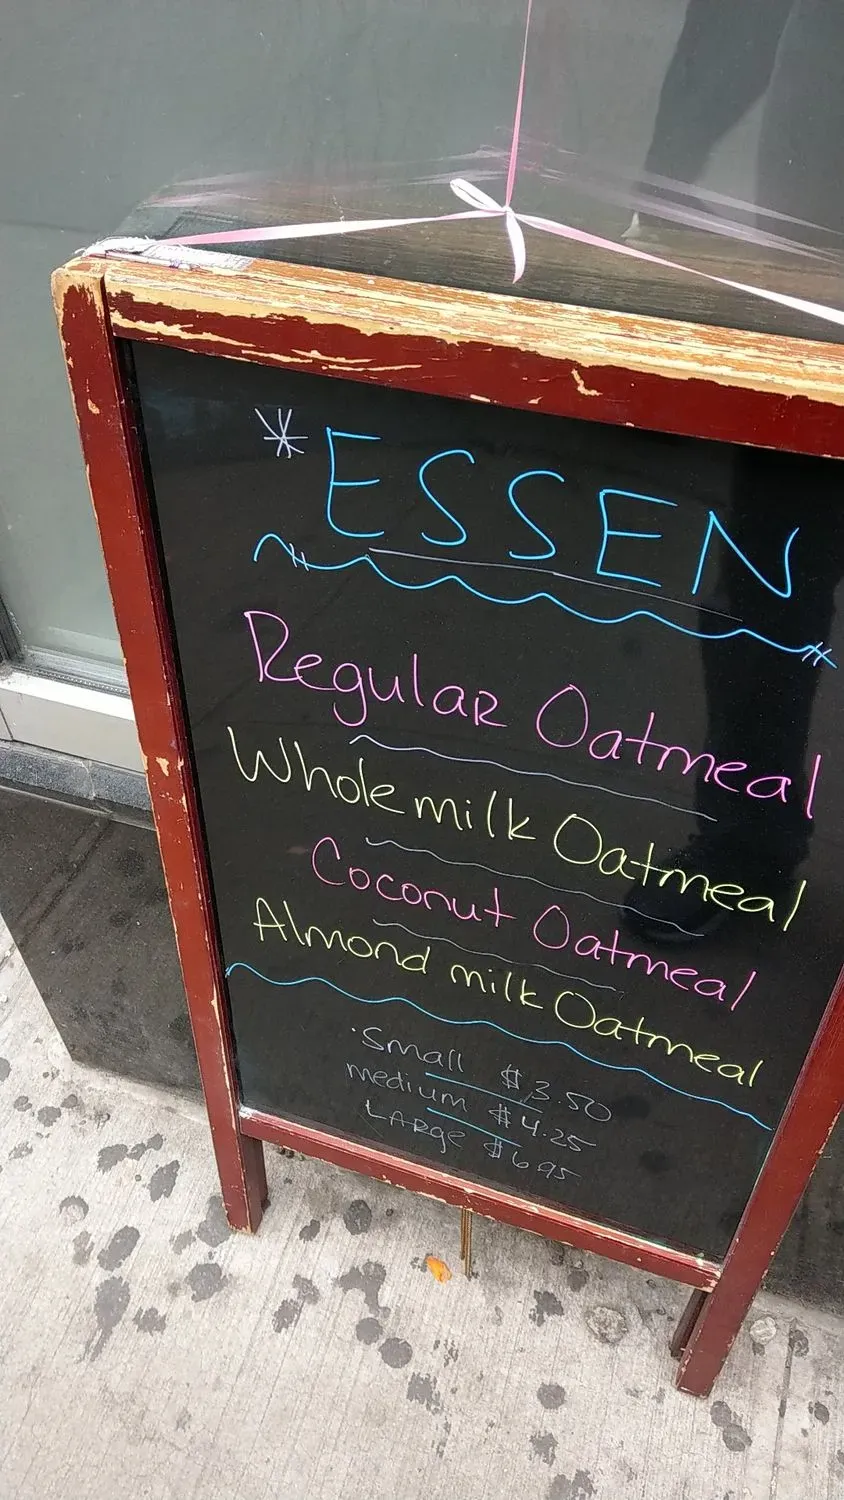 *ESSEN
Regular Oatmeal
Whole milk Oatmeal
Coconut Oatmeal
Almond milk Oatmeal
·small $3.50
medium $4.25
LARge $6.95